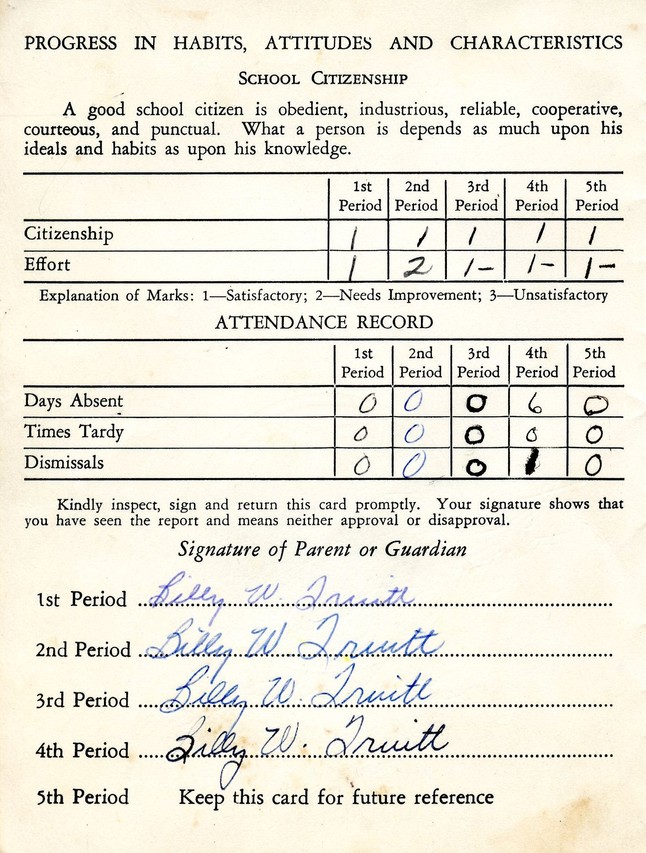 PROGRESS IN HABITS, ATTITUDES AND CHARACTERISTICS
SCHOOL CITIZENSHIP
A good school citizen is obedient, industrious, reliable, cooperative,
courteous, and punctual. What a person is depends as much upon his
ideals and habits as upon his knowledge.
1st Period 2nd Period 3rd Period 4th Period 5th Period
Citizenship 1 1 1 1 1
Effort 1 2 1- 1- 1-
Explanation of Marks: 1—Satisfactory; 2—Needs Improvement; 3—Unsatisfactory
ATTENDANCE RECORD
1st Period 2nd Period 3rd Period 4th Period 5th Period
Days Absent 0 0 0 6 0
Times Tardy 0 0 0 0 0
Dismissals 0 0 0 1 0
Kindly inspect, sign and return this card promptly. Your signature shows that
you have seen the report and means neither approval or disapproval.
Signature of Parent or Guardian
1st Period Billy W. Truitt
2nd Period Billy W Truitt
3rd Period Billy W. Truitt
4th Period Billy W. Truitt
5th Period Keep this card for future reference